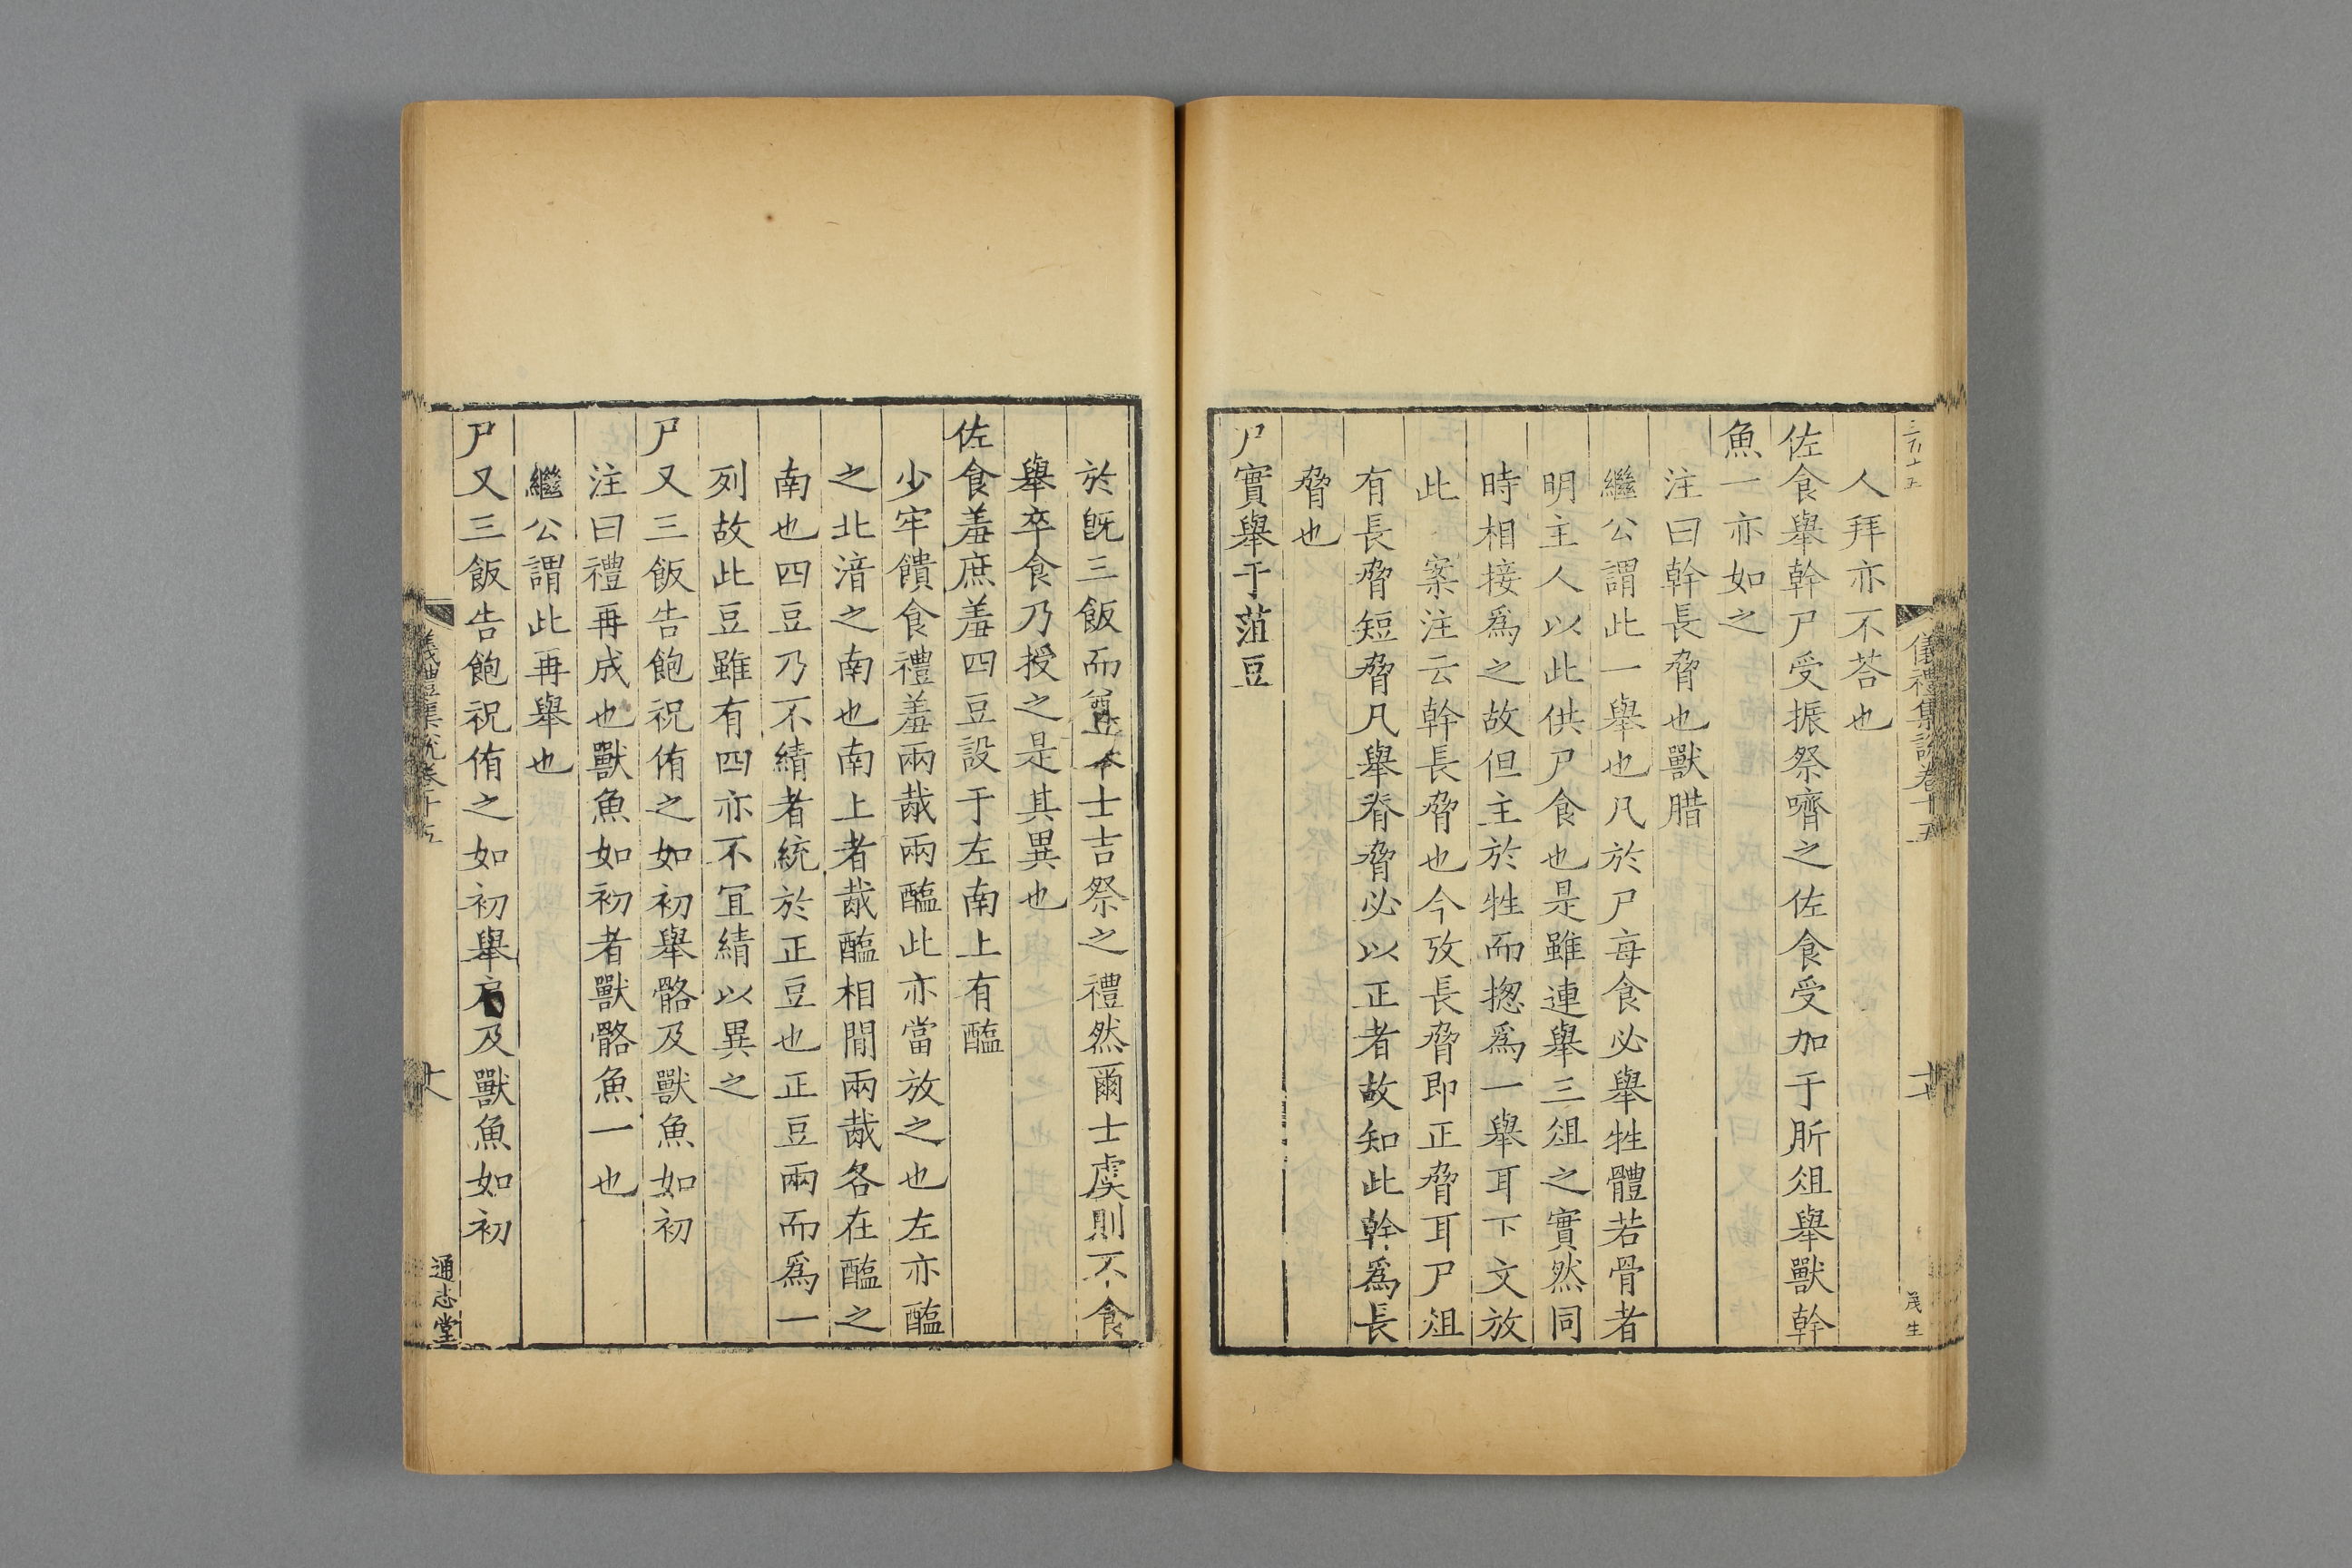 儀禮集說卷十五
人拜亦不荅也
佐食舉幹尸受振祭嚌之佐食受加于肵俎舉獸幹
魚一亦如之
注曰幹長脅也獸腊
繼公謂此一舉也凡於尸每食必舉牲體若骨者
明主人以此供尸食也是雖連舉三俎之實然同
時相接爲之故但主於牲而揔爲一舉耳下文放
此 案注云幹長脅也今攷長脅即正脅耳尸俎
有長脅短脅凡舉脊脅必以正者故知此幹爲長
脅也
尸實舉于菹豆
於既三飯而奠此士吉祭之禮然爾士虞則不食
舉卒食乃授之是其異也
佐食羞庶羞四豆設于左南上有醢
少牢饋食禮羞兩胾兩醢此亦當放之也左亦醢
之北湇之南也南上者胾醢相閒兩胾各在醢之
南也四豆乃不綪者統於正豆也正豆兩而爲一
列故此豆雖有四亦不冝綪以異之
尸又三飯告飽祝侑之如初舉骼及獸魚如初
注曰禮再成也獸魚如初者獸骼魚一也
繼公謂此再舉也
尸又三飯告飽祝侑之如初舉肩及獸魚如初
儀禮集說卷十五
通志堂